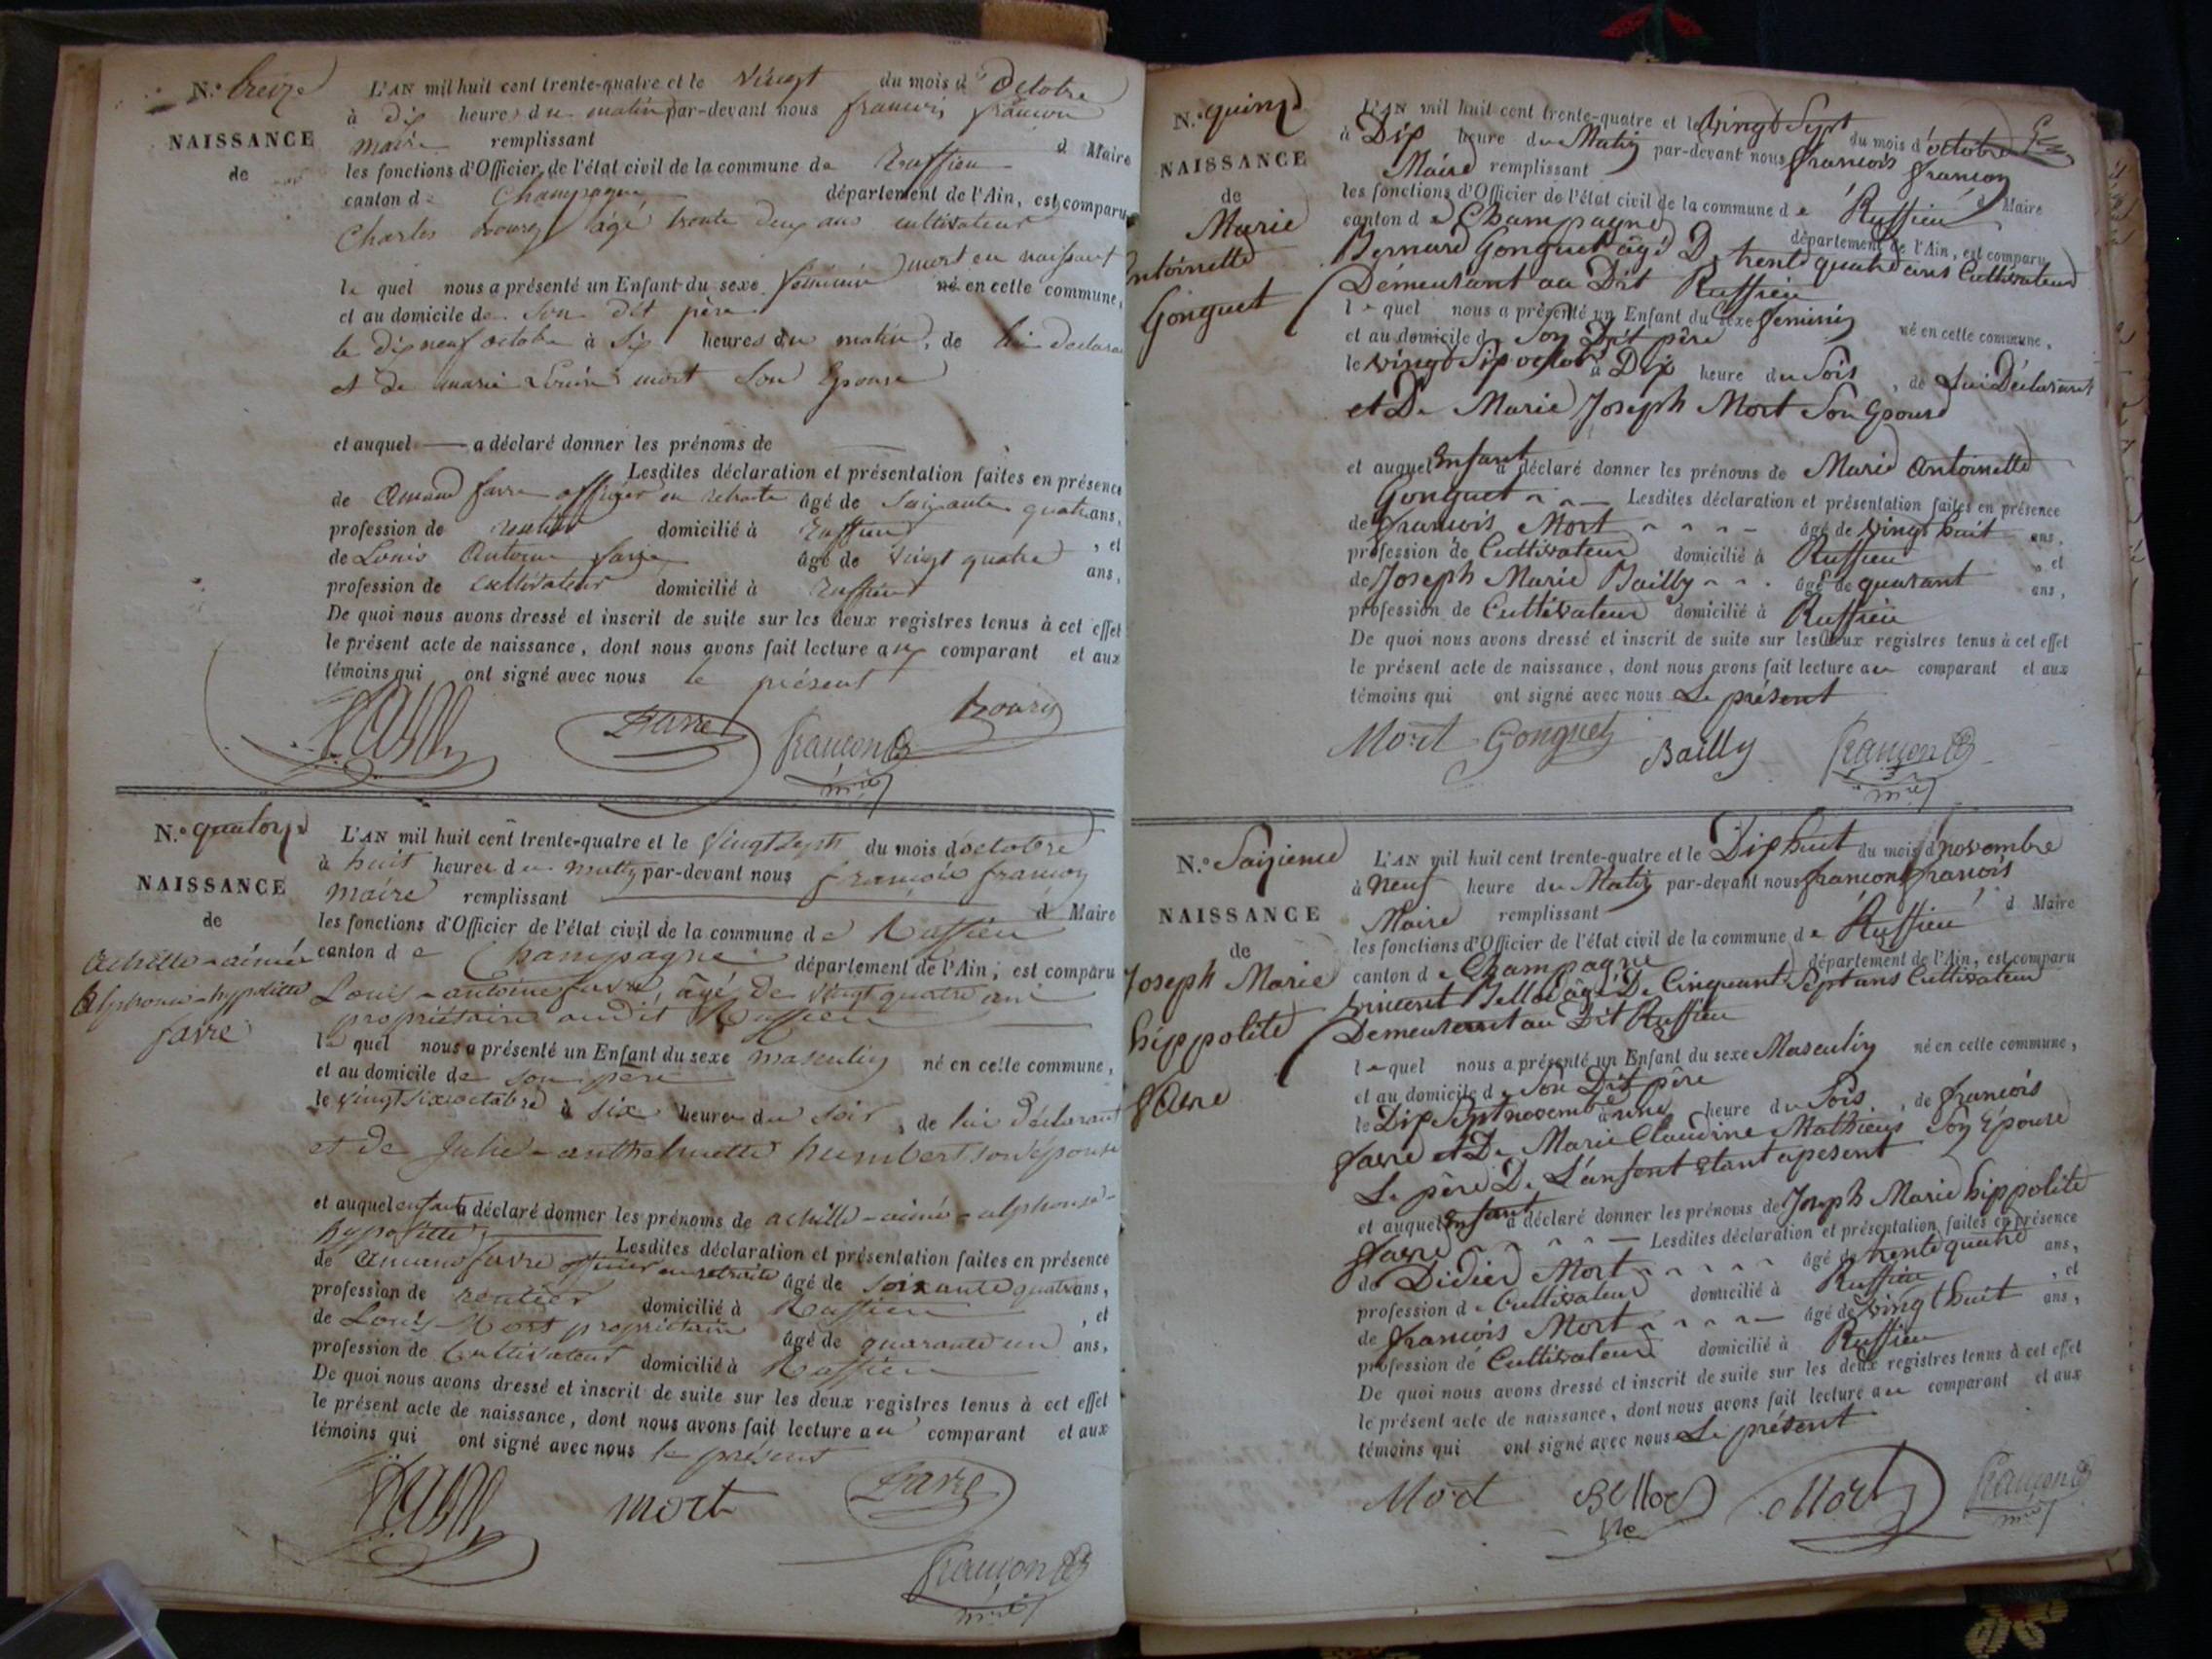 N.º treize
NAISSANCE
de
L'AN mil huit cent trente-quatre et le vingt du mois d'octobre
à dix heures du matin par-devant nous francois françon
maire remplissant d Maire
les fonctions d'Officier de l'état civil de la commune de Ruffieu
canton de Champagne département de l'Ain, est comparu
Charles âgé trente deux ans cultivateur
mort en naissant
le quel nous a présenté un Enfant du sexe féminin né en cette commune,
et au domicile de Son dit père
le dix neuf octobre à Six heures du matin, de lui declarant
et de marie Louise mort Son Epouse
et auquel — a déclaré donner les prénoms de
Lesdites déclaration et présentation faites en présence
de Amand favre officier en retraite âgé de Soixante quatre ans,
profession de rentier domicilié à Ruffieu , et
de Louis Antoine favre âgé de vingt quatre ans,
profession de cultivateur domicilié à Ruffieu
De quoi nous avons dressé et inscrit de suite sur les deux registres tenus à cet effet
le présent acte de naissance, dont nous avons fait lecture aux comparant et aux
témoins qui ont signé avec nous le présent
favre françon
mre
N.º quatorze
NAISSANCE
de
Achille-aimé
Alphonse-hyppolitte
favre
L'AN mil huit cent trente-quatre et le vingt sept du mois d'octobre
à huit heures du matin par-devant nous françois françon
maire remplissant d Maire
les fonctions d'Officier de l'état civil de la commune de Ruffieu
canton de Champagne département de l'Ain, est comparu
Louis-antoine favre, âgé de vingt quatre ans
propriétaire audit Ruffieu
le quel nous a présenté un Enfant du sexe masculin né en cette commune,
et au domicile de son père
le vingt six octobre à six heures du soir, de lui déclarant
et de Julie-anthelmette humbert son épouse
et auquel enfant a déclaré donner les prénoms de achille-aimé-alphonse-
hyppolitte Lesdites déclaration et présentation faites en présence
de Amand favre officier en retraite âgé de soixante quatre ans,
profession de rentier domicilié à Ruffieu , et
de Louis Mort propriétaire âgé de quarante un ans,
profession de Cultivateur domicilié à Ruffieu
De quoi nous avons dressé et inscrit de suite sur les deux registres tenus à cet effet
le présent acte de naissance, dont nous avons fait lecture au comparant et aux
témoins qui ont signé avec nous le présent
mort favre
françon
mre
N.º quinze
NAISSANCE
de
Marie
antoinette
Gonguet
L'AN mil huit cent trente-quatre et le vingt Sept du mois d'octobre
à Dix heure du Matin par-devant nous francois françon
Maire remplissant d Maire
les fonctions d'Officier de l'état civil de la commune de Ruffieu
canton de Champagne département de l'Ain, est comparu
Bernard Gonguet âgé De trente quatre ans Cultivateur
Demeurant au Dit Ruffieu
le quel nous a présenté un Enfant du sexe feminin né en cette commune,
et au domicile de Son Dit père
le vingt Six octobre à Dix heure du Soir, de Lui Déclarant
et De Marie Joseph Mort Son Epouse
et auquel Enfant a déclaré donner les prénoms de Marie Antoinette
Gonguet Lesdites déclaration et présentation faites en présence
de francois Mort âgé de vingt huit ans,
profession de Cultivateur domicilié à Ruffieu , et
de Joseph Marie Bailly âgé de quarant ans,
profession de Cultivateur domicilié à Ruffieu
De quoi nous avons dressé et inscrit de suite sur les deux registres tenus à cet effet
le présent acte de naissance, dont nous avons fait lecture au comparant et aux
témoins qui ont signé avec nous Le présent
Mort Gonguet Bailly françon
mre
N.º Saizieme
NAISSANCE
de
Joseph Marie
hippolite
favre
L'AN mil huit cent trente-quatre et le Dix huit du mois d'novembre
à neuf heure du Matin par-devant nous françon francois
Maire remplissant d Maire
les fonctions d'Officier de l'état civil de la commune de Ruffieu
canton de Champagne département de l'Ain, est comparu
vincent Bellod âgé De Cinquant Sept ans Cultivateur
Demeurant au Dit Ruffieu
le quel nous a présenté un Enfant du sexe Masculin né en cette commune,
et au domicile de Son Dit père
le Dix Sept novembre à une heure du Soir, de francois
favre et De Marie Claudine Mathieu Son Epouse
Le père De L'anfent Etant apesent
et auquel Enfant a déclaré donner les prénoms de Joseph Marie hippolite
favre Lesdites déclaration et présentation faites en présence
de Didier Mort âgé de trente quatre ans,
profession de Cultivateur domicilié à Ruffieu , et
de francois Mort âgé de vingt huit ans,
profession de Cultivateur domicilié à Ruffieu
De quoi nous avons dressé et inscrit de suite sur les deux registres tenus à cet effet
le présent acte de naissance, dont nous avons fait lecture au comparant et aux
témoins qui ont signé avec nous Le présent
Mort Bellod Mort françon
mre